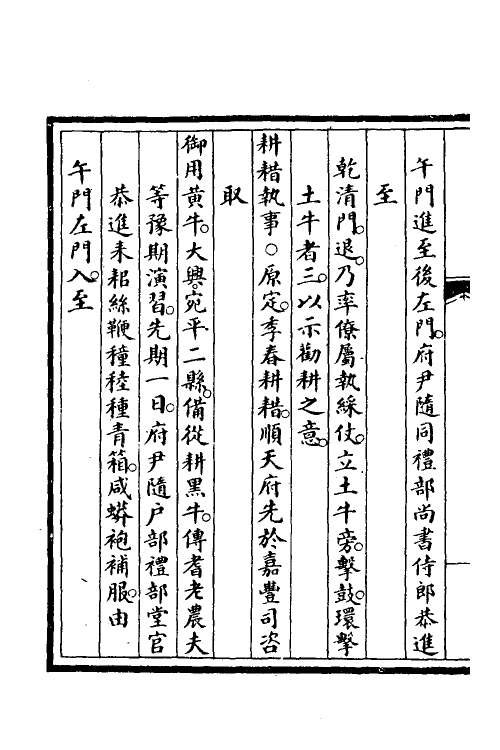 午門進至後左門。府尹隨同禮部尚書侍郎恭進
至
乾清門。退。乃率僚屬執綵仗。立土牛旁。擊鼓。環擊
土牛者三。以示勸耕之意。
耕耤執事○原定。季春耕耤。順天府先於嘉豐司咨
取
御用黃牛。大興。宛平二縣。備從耕黑牛。傳耆老農夫
等豫期演習。先期一日。府尹隨戶部禮部堂官
恭進耒耜絲鞭穜稑種青箱。咸蟒袍補服。由
午門左門入。至